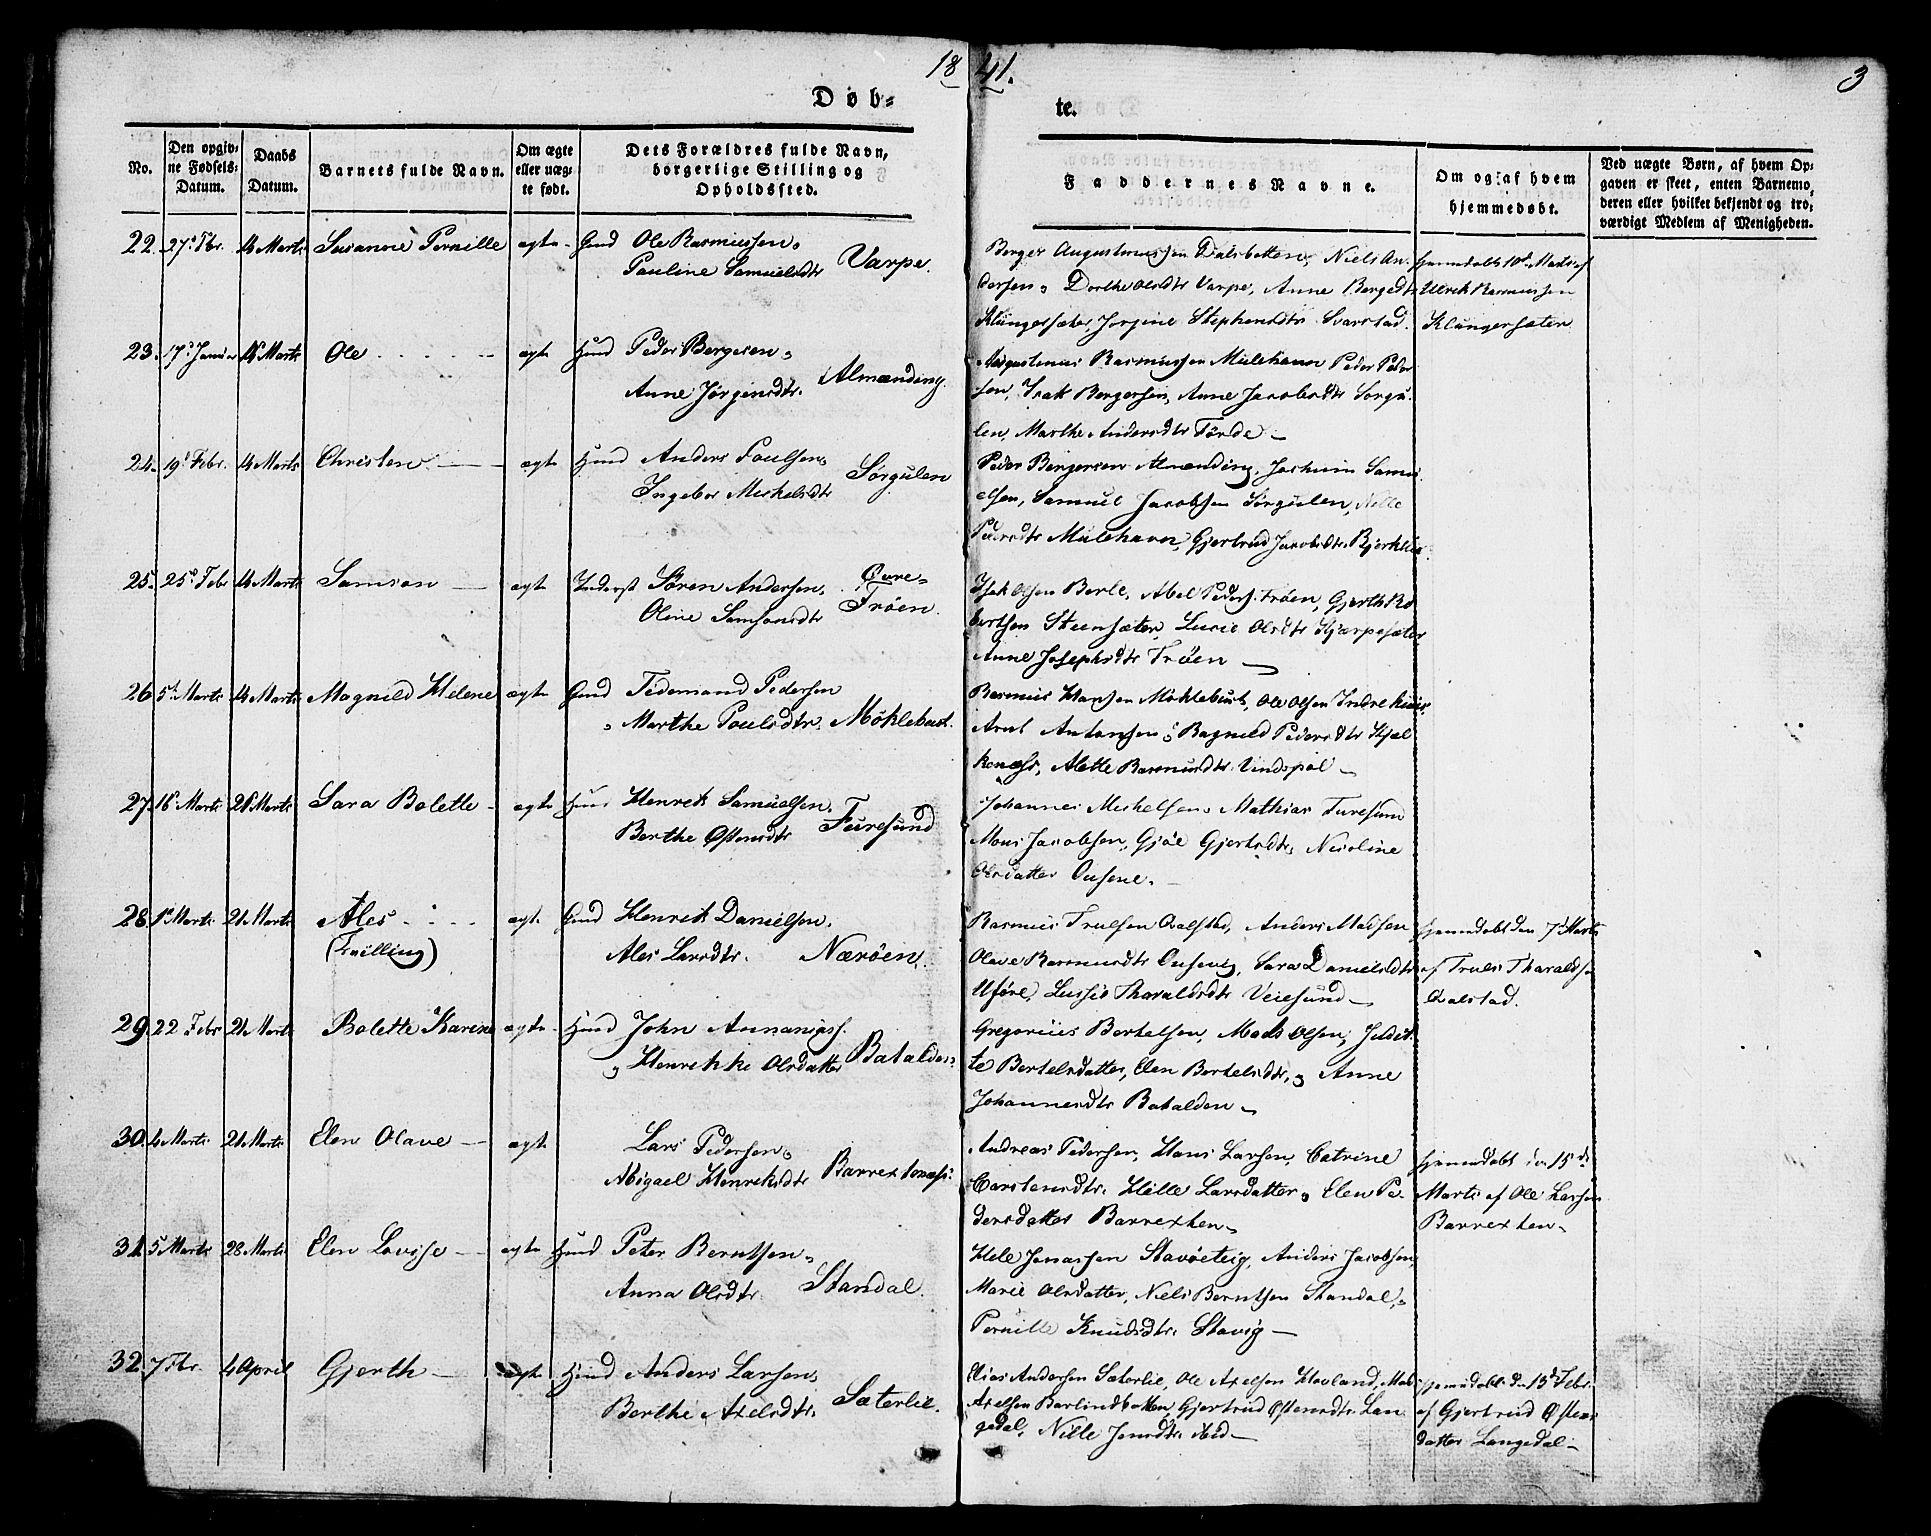 1841.
3
Døb-
te.
No.
Den opgiv-
ne Fødsels-
Datum.
Daabs
Datum.
Barnets fulde Navn.
Om ægte
eller uæg-
te født.
Dets Forældres fulde Navn,
borgerlige Stilling og
Opholdssted.
Faddernes Navne.
Om og af hvem
hjemmedøbt.
Ved uægte Børn, af hvem Op-
gaven er skeet, enten Barnemo-
deren eller hvilket bekjendt og tro-
værdigt Medlem af Menigheden.
22. 27de Fbr. 14 Marts Susanne Pernille ægte Gmd Ole Rasmussen
Pauline Samuelsdtr Varpe.
Berger Augustinussen Dalsbotten, Niels An-
dersen, Dorthe Olsdtr Varpe, Anne Bergedtr
Klungersæter, Jorgine Stephensdtr Svarstad.
Hjemmedøbt 10de Marts af
Ulrik Rasmussen
Klungersæter
23. 17de Januar 14 Marts Ole ægte Huud Peder Bergesen
Anne Jørgensdtr. Almending.
Augustinus Rasmussen Mulehavn Peder Peder
sen, Isak Bergersen, Anne Jacobsdtr Sørgu-
len, Marthe Andersdtr Førde
24. 19de Febr. 14 Marts Christen ægte Huud Anders Poulsen
Ingebor Mickelsdtr Sørgulen
Peder Bergersen Almending, Jochum Samu
elsen, Samuel Jacobsen Sørgulen, Nille
Pedersdtr Mulehavn, Gjertrud Jacobsdtr.
25. 25de Febr 14 Marts Samson ægte Inderst Søren Andersen,
Oline Samsonsdtr Øvre-
Trøen.
Isak Olsen Berle, Abel Peders: Trøen, Gjerth Ro
bertsen Steensæter, Lucie Olsdtr Hjærpesæter
Anne Josephsdtr Trøen
26 5te Marts 14 Marts Magnild Helene ægte Gmd Tidemand Pedersen
Marthe Poulsdtr. Møklebust.
Rasmus Hansen Møklebust, Ole Olsen Indrehuus,
Arnt Antonsen, Ragnild Pedersdtr Hjel
kenæss, Alette Rasmusdtr Vindspol
27. 16de Marts 21 Marts Sara Bolette ægte Huud Henrik Samuelsen.
Berthe Østensdtr Furesund
Johannes Mickelsen, Mathias Furesund
Mons Jacobsen, Gjøe Gjertsdtr, Nicoline
Olsdatter Ousene.
28. 1ste Marts 21 Marts Ales
(Tvilling) ægte Gmd Henrik Danielsen.
Ales Larsdtr. Nærøen.
Rasmus Trulsen Qvalstad, Anders Madsen
Olave Rasmusdtr Ousevig, Sara Danielsdtr
Uføre, Lussie Tharaldsdtr Veiesund
Hjemmedøbt den 7de Marts
af Truls Tharaldsen
Qvalstad.
29. 22 Febr 21 Marts Bolette Karine ægte Huud John Annanias.
Henrikke Olsdatter Batalden
Gregorius Bertelsen, Mads Olsen, Judit-
te Bertelsdatter, Elen Bertelsdtr, Anne
Johannesdtr Batalden
30. 4 Marts 21 Marts Elen Olave ægte Lars Pedersen
Abigael Henriksdtr Barrextenæss
Andreas Pedersen, Hans Larsen, Catrine
Carstensdtr. Hille Larsdatter, Elen Pe-
dersdatter Barrexten
Hjemmedøbt den 15de
Marts af Ole Larsen
Barrexten
31. 5 Marts 28 Marts Elen Lovise ægte Huud Peter Berntsen
Anna Olsdtr Standal.
Hele Jonassen Stavøeteig, Anders Jacobsen,
Marie Olsdatter, Niels Berntsen Standal,
Pernille Knudsdtr. Stavig
32. 7 Fbr. 4 April Gjerth ægte Huud Anders Larsen,
Berthe Axelsdtr. Sæterlie.
Elias Andersen Sæterlie, Ole Axelsen Hovland, Mad
Axelsen Barlindbotten, Gjertrud Østensdtr Lan-
gedal, Nille Jensdtr. ibid
Hjemmedøbt den 15de Febr.
af Gjertrud Østens
datter Langedal